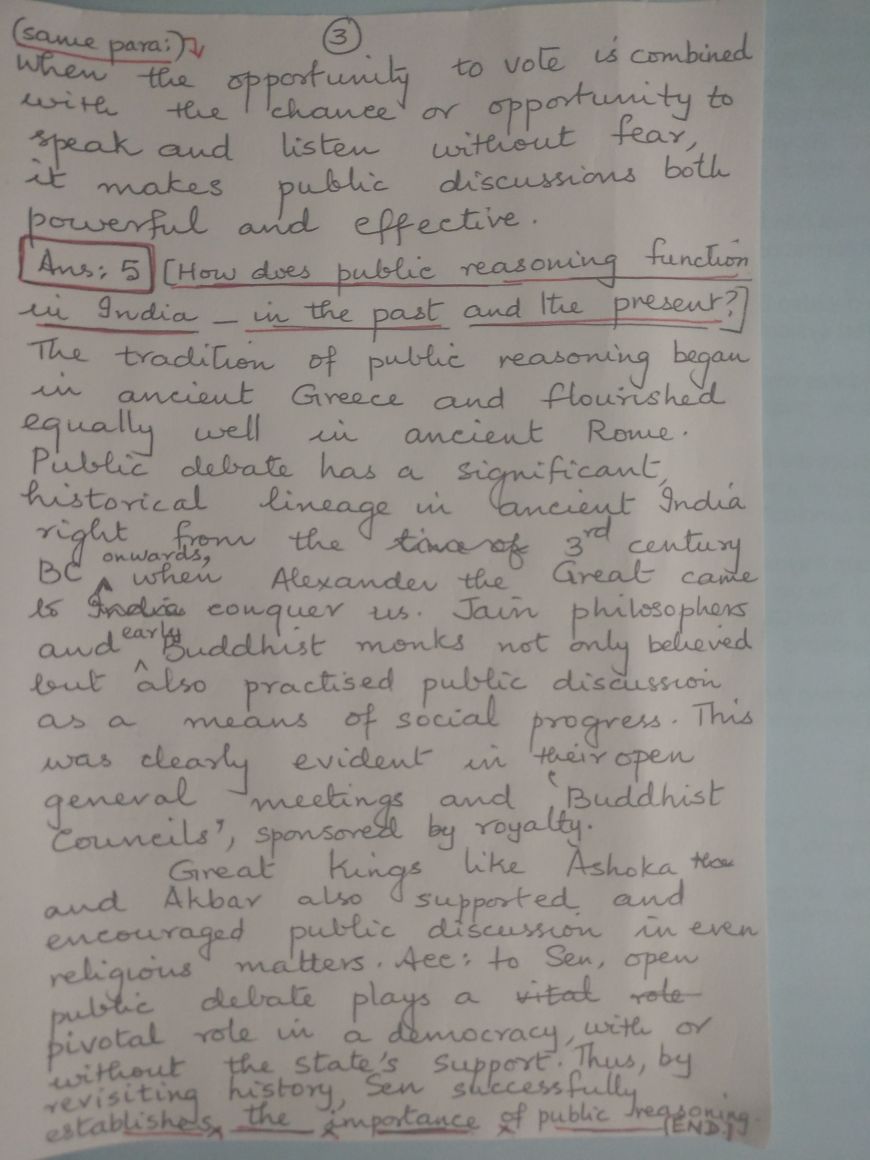 (same para:) ③
when the opportunity to vote is combined
with the chance or opportunity to
speak and listen without fear,
it makes public discussions both
powerful and effective.
Ans: 5 [How does public reasoning function
in India – in the past and the present?]
The tradition of public reasoning began
in ancient Greece and flourished
equally well in ancient Rome.
Public debate has a significant,
historical lineage in ancient India
right from the time of 3rd century
BC onwards, when Alexander the Great came
to India conquer us. Jain philosophers
and early Buddhist monks not only believed
but also practised public discussion
as a means of social progress. This
was clearly evident in their open
general meetings and 'Buddhist
Councils', sponsored by royalty.
Great Kings like Ashoka
and Akbar also supported and
encouraged public discussion in even
religious matters. Acc: to Sen, open
public debate plays a vital role
pivotal role in a democracy, with or
without the state's support. Thus, by
revisiting history, Sen successfully
establishes the importance of public reasoning.
(END)